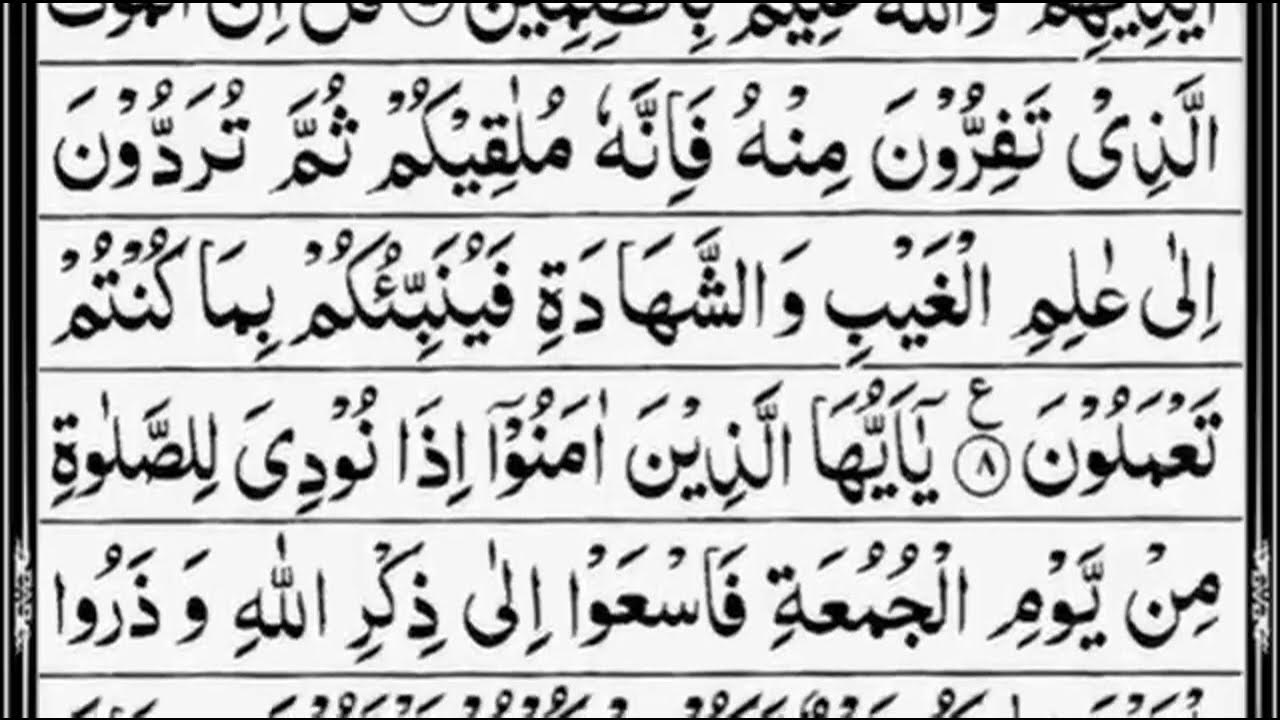 اَيْدِيْهِمْ وَاللّٰهُ عَلِيْمٌۢ بِالظّٰلِمِيْنَ ۝ قُلْ اِنَّ الْمَوْتَ
الَّذِىْ تَفِرُّوْنَ مِنْهُ فَاِنَّهٗ مُلٰقِيْكُمْ ثُمَّ تُرَدُّوْنَ
اِلٰى عٰلِمِ الْغَيْبِ وَالشَّهَادَةِ فَيُنَبِّئُكُمْ بِمَا كُنْتُمْ
تَعْمَلُوْنَ ۝٨ ع يٰٓاَيُّهَا الَّذِيْنَ اٰمَنُوْٓا اِذَا نُوْدِىَ لِلصَّلٰوةِ
مِنْ يَّوْمِ الْجُمُعَةِ فَاسْعَوْا اِلٰى ذِكْرِ اللّٰهِ وَ ذَرُوا